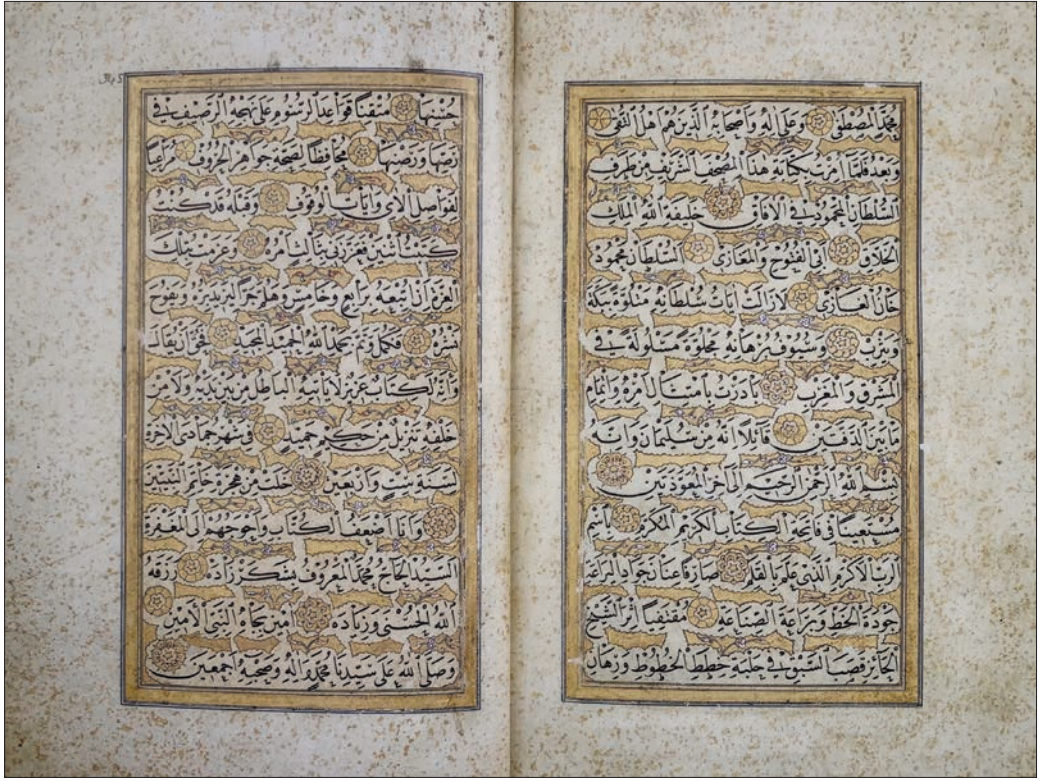 محمد المصطفى وعلى اله واصحابه الذين هم اهل التقى
وبعد فلما امرت بكتابة هذا المصحف الشريف من طرف
السلطان المحمود في الافاق خليفة الله الملك
الخلاق ابي الفتوح والمغازى السلطان محمود
خان الغازى لا زالت ايات سلطانه متلوة بمكة
ويثرب وسيوف برهانه مجلوة مسلولة في
المشرق والمغرب بادرت بامتثال امره واتمام
ما بين الدفتين قائلا انه من سليمان وانه
بسم الله الرحمن الرحيم الى اخر المعوذتين
مستعينا في فاتحة الكتاب الكريم المكرم باسم
الرب الاكرم الذى علم بالقلم صارفا عنان جواد البراعة
جودة الخط وبراعة الصناعة مقتفيا اثر الشيخ
الحائز قصب السبق في حلبة خطط الخطوط ورهان
حسنها متقنا قواعد الرسوم على نهجه الرصيف في
رصها ورصنها محافظا لصحة جواهر الحروف مراعيا
لفواصل الاى وايات الوقوف وقبله قد كنت
كتبت اثنين فعززنى بثالث امره وعزمت بتلك
العزم ان اتبعه برابع وخامس وهلم جرا ليزيد بره ويفوح
نشره فكمل وتم بحمد الله الحميد المجيد فحرى ان يقال
وانه لكتاب عزيز لا ياتيه الباطل من بين يديه ولا من
خلفه تنزيل من حكيم حميد في شهر جمادى الاخرة
لسنة ست واربعين خلت من هجرة خاتم النبيين
وانا اضعف الكتاب واحوجهم الى المغفرة
السيد الحاج محمد المعروف بشكرزاده رزقه
الله الحسنى وزياده امين بجاه النبى الامين
وصلى الله على سيدنا محمد واله وصحبه اجمعين